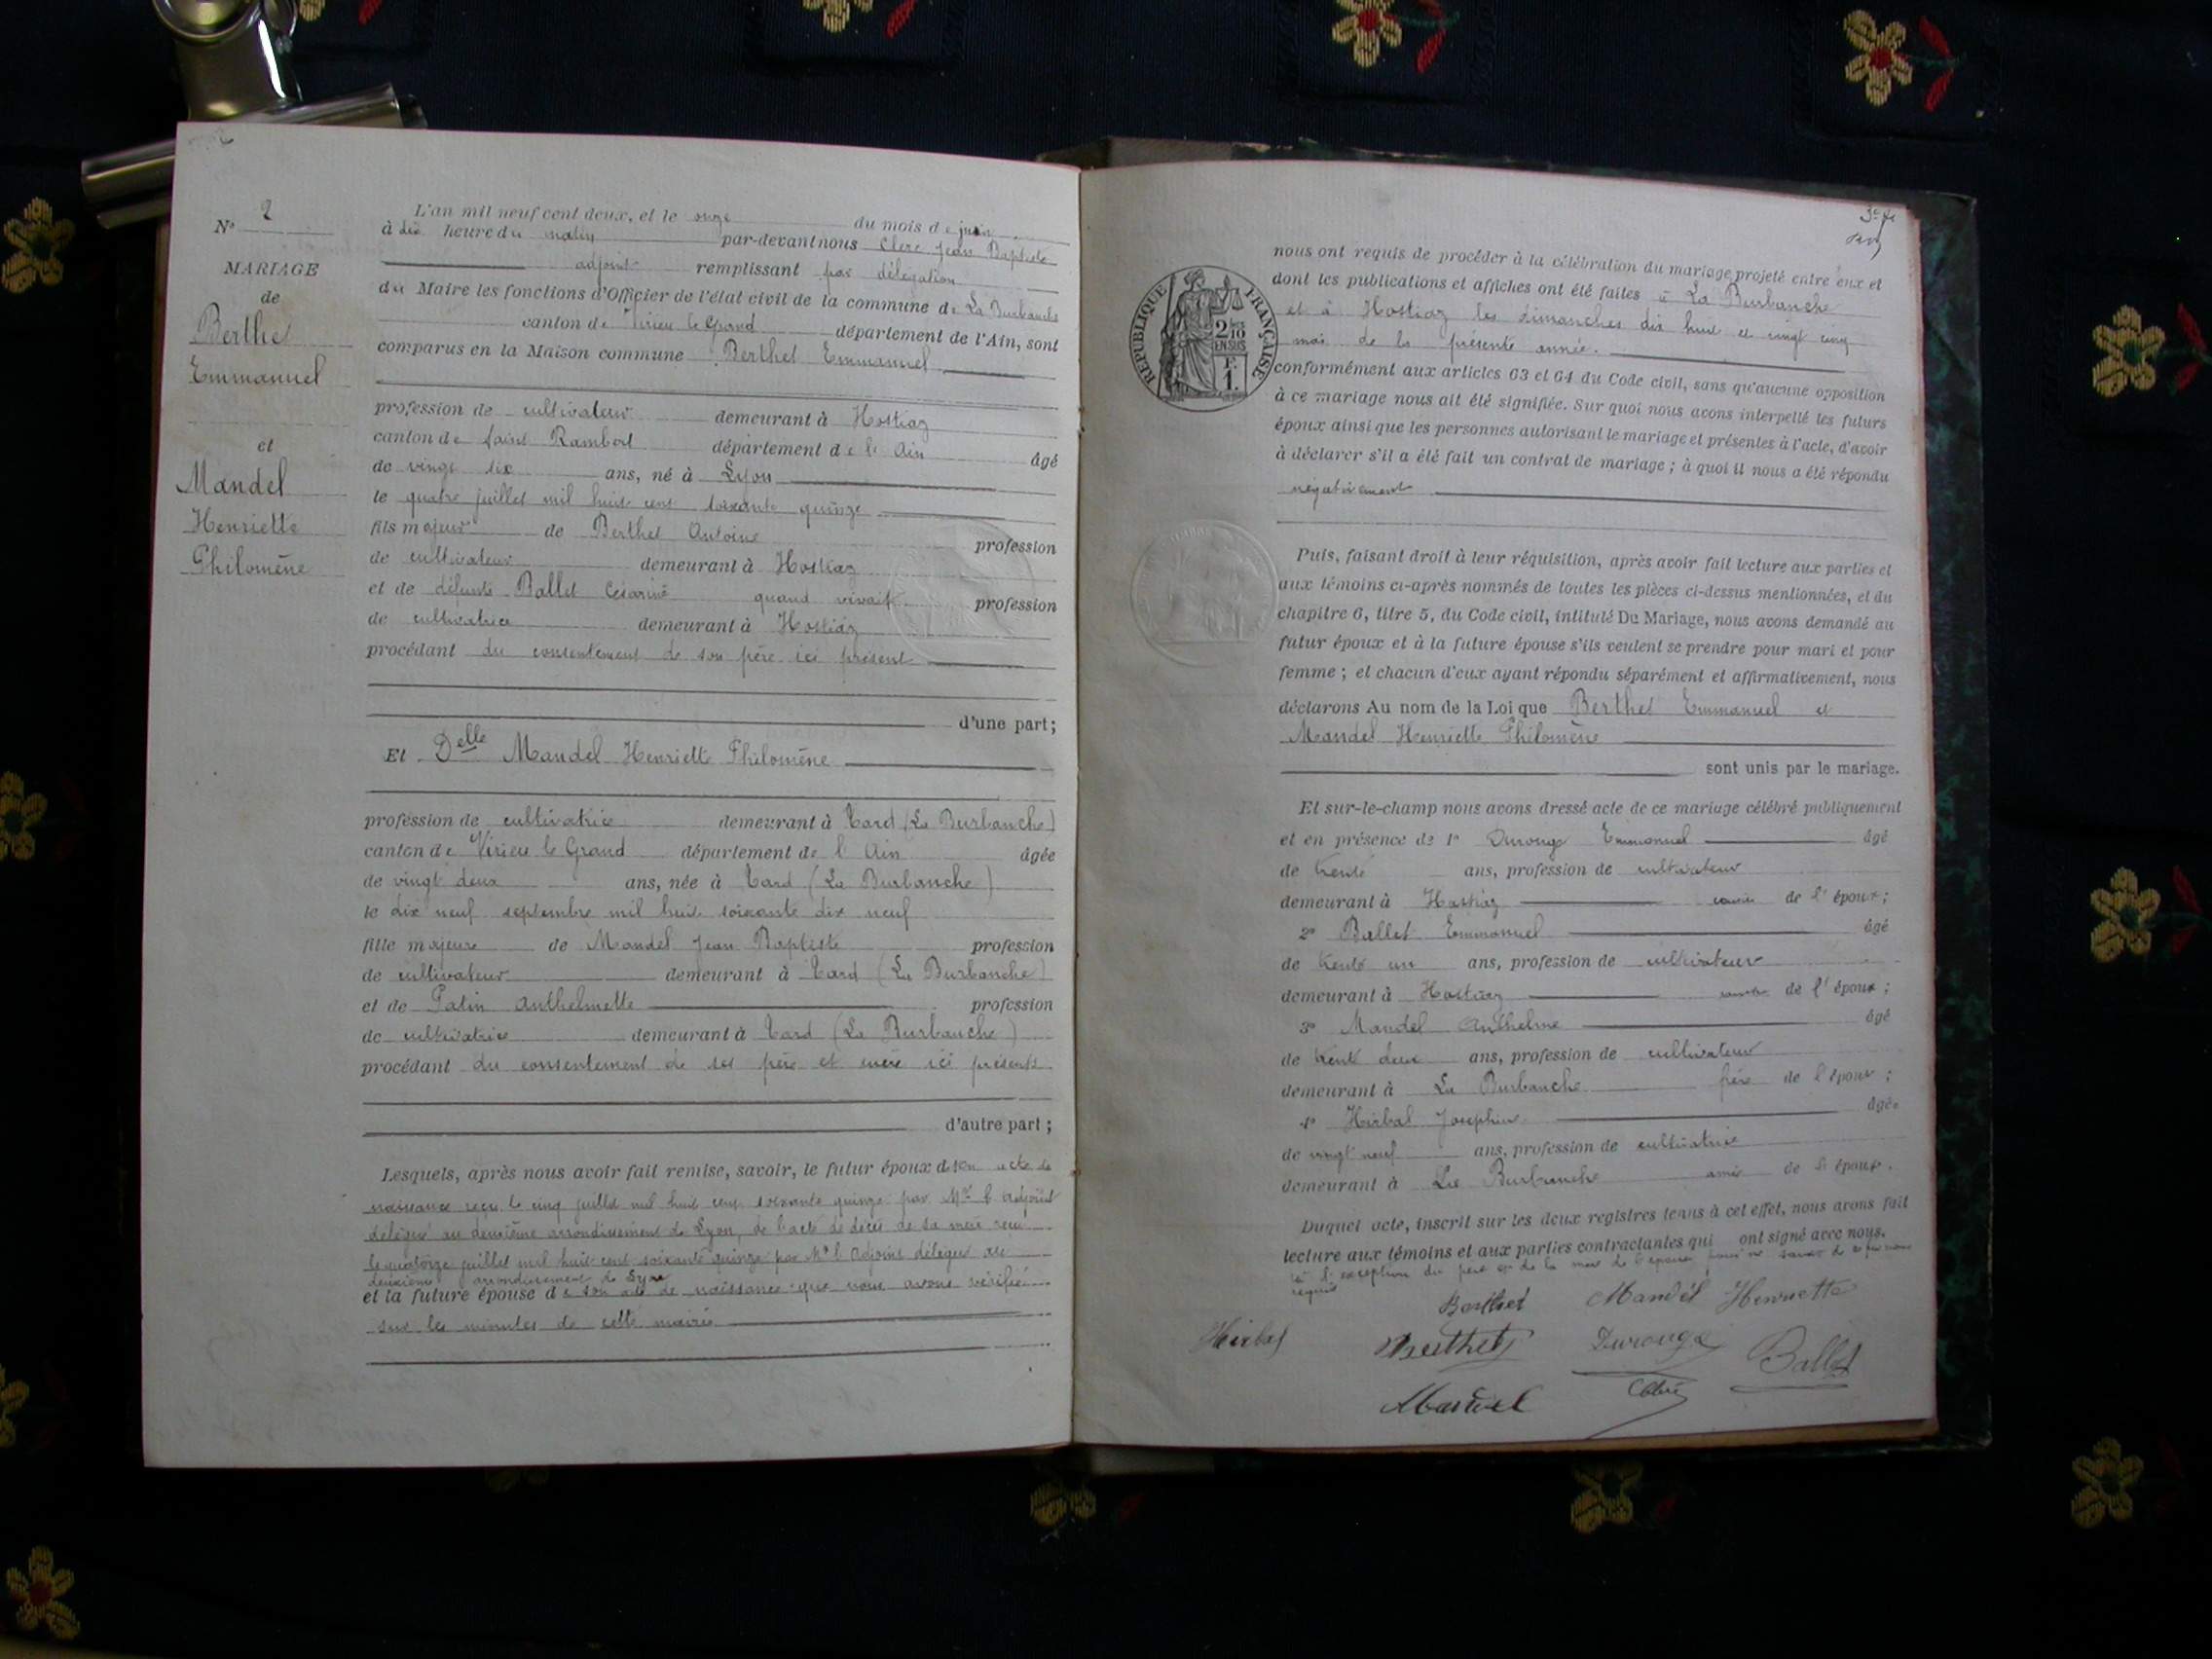 N° 2
MARIAGE
de
Berthet
Emmanuel
et
Mandel
Henriette
Philomène
L'an mil neuf cent deux, et le onze du mois de juin
à dix heure du matin par-devant nous Clerc Jean Baptiste
adjoint remplissant par délégation
du Maire les fonctions d'Officier de l'état civil de la commune de La Burbanche
canton de Virieu le Grand département de l'Ain, sont
comparus en la Maison commune Berthet Emmanuel
profession de cultivateur demeurant à Hostiaz
canton de Saint Rambert département de l'Ain âgé
de vingt six ans, né à Lyon
le quatre juillet mil huit cent soixante quinze
fils majeur de Berthet Antoine profession
de cultivateur demeurant à Hostiaz
et de défunte Ballet Césarine quand vivait profession
de cultivatrice demeurant à Hostiaz
procédant du consentement de son père ici présent
d'une part;
Et Delle Mandel Henriette Philomène
profession de cultivatrice demeurant à Tard (La Burbanche)
canton de Virieu le Grand département de l'Ain âgée
de vingt deux ans, née à Tard (La Burbanche)
le dix neuf septembre mil huit soixante dix neuf
fille majeure de Mandel Jean Baptiste profession
de cultivateur demeurant à Tard (La Burbanche)
et de Patin Anthelmette profession
de cultivatrice demeurant à Tard (La Burbanche)
procédant du consentement de ses père et mère ici présents
d'autre part;
Lesquels, après nous avoir fait remise, savoir, le futur époux de son acte de
naissance reçu le cinq juillet mil huit cent soixante quinze par Mr l'adjoint
délégué au deuxième arrondissement de Lyon, de l'acte de décès de sa mère reçu
le quatorze juillet mil huit cent soixante quinze par Mr l'Adjoint délégué au
deuxième arrondissement de Lyon
et la future épouse de son acte de naissance que nous avons vérifié
sur les minutes de cette mairie
3e
nous ont requis de procéder à la célébration du mariage projeté entre eux et
dont les publications et affiches ont été faites à La Burbanche
et à Hostiaz les dimanches dix huit et vingt cinq
mai de la présente année.
REPUBLIQUE FRANÇAISE
2/10
EN SUS
F.
1.
conformément aux articles 63 et 64 du Code civil, sans qu'aucune opposition
à ce mariage nous ait été signifiée. Sur quoi nous avons interpellé les futurs
époux ainsi que les personnes autorisant le mariage et présentes à l'acte, d'avoir
à déclarer s'il a été fait un contrat de mariage; à quoi il nous a été répondu
négativement
Puis, faisant droit à leur réquisition, après avoir fait lecture aux parties et
aux témoins ci-après nommés de toutes les pièces ci-dessus mentionnées, et du
chapitre 6, titre 5, du Code civil, intitulé Du Mariage, nous avons demandé au
futur époux et à la future épouse s'ils veulent se prendre pour mari et pour
femme; et chacun d'eux ayant répondu séparément et affirmativement, nous
déclarons Au nom de la Loi que Berthet Emmanuel et
Mandel Henriette Philomène
sont unis par le mariage.
Et sur-le-champ nous avons dressé acte de ce mariage célébré publiquement
et en présence de 1° Durouge Emmanuel âgé
de trente ans, profession de cultivateur
demeurant à Hostiaz cousin de l'époux;
2° Ballet Emmanuel âgé
de trente un ans, profession de cultivateur
demeurant à Hostiaz cousin de l'époux;
3° Mandel Anthelme âgé
de trente deux ans, profession de cultivateur
demeurant à La Burbanche frère de l'épouse;
4° Hirbal Josephine âgée
de vingt neuf ans, profession de cultivatrice
demeurant à La Burbanche amie de l'épouse.
Duquel acte, inscrit sur les deux registres tenus à cet effet, nous avons fait
lecture aux témoins et aux parties contractantes qui ont signé avec nous.
à l'exception du père et de la mère de l'épouse pour ne savoir de ce
requis
Berthet Mandel Henriette
Hirbal Berthet Durouge Ballet
Mandel Clerc